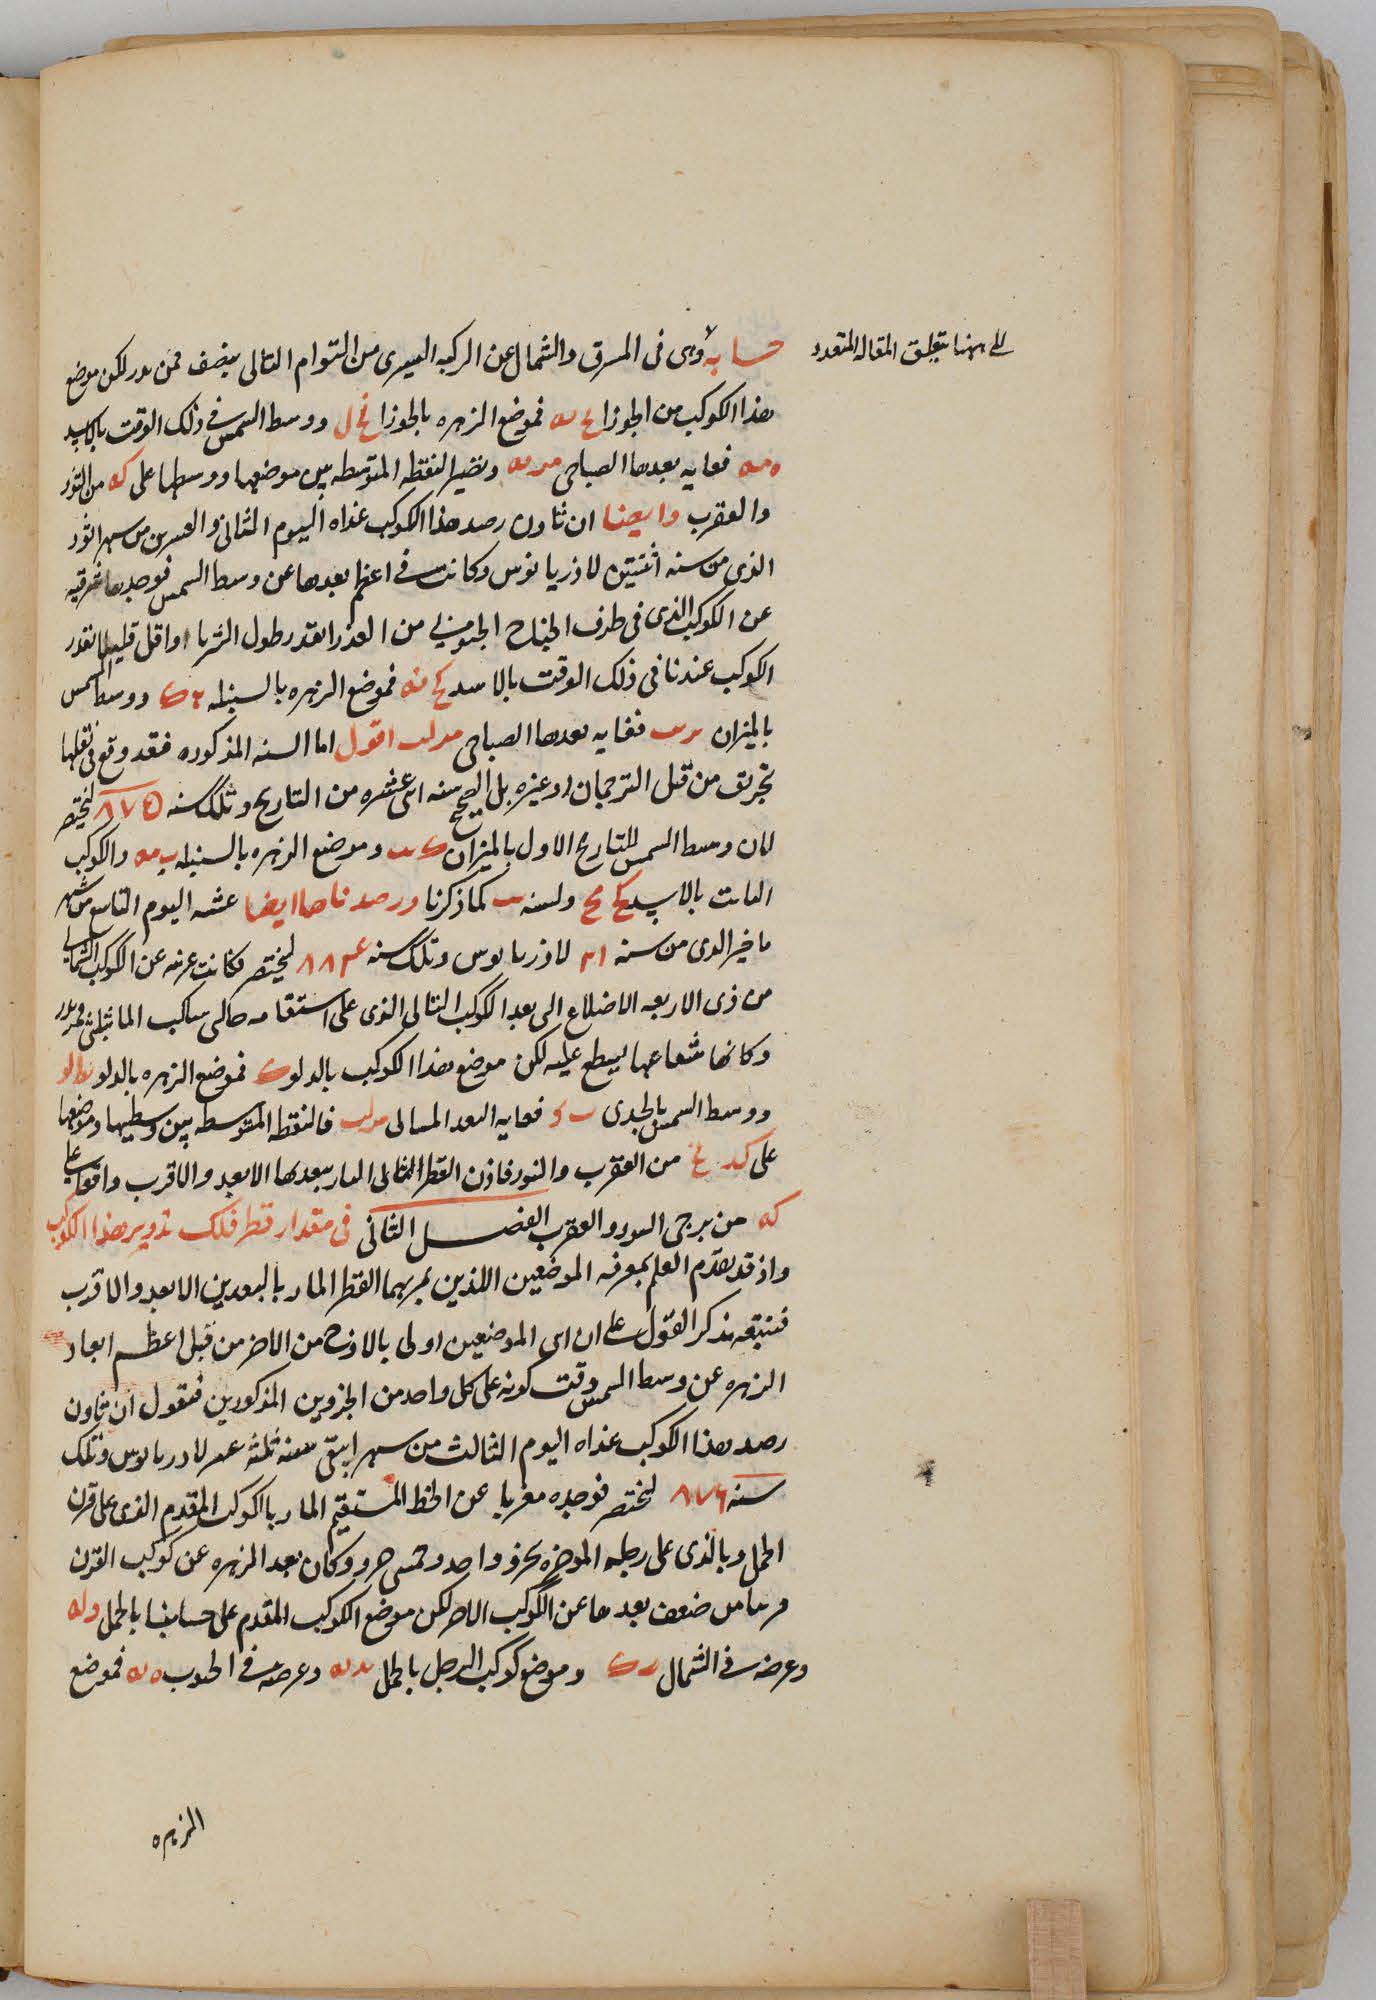 الى ههنا يتعلق المقاله المتعدد
حسابه وهى فى المسرق والشمال عن الركبه اليسرى من التوام التالى بنصف ثمن بدر لكن موضع
هذا الكوكب من الجوزا فموضع الزهره بالجوزا ووسط الشمس فى ذلك الوقت بالاسد
فغايه بعدها الصباحى وتصير النقطه المتوسطه بين موضعها ووسطها على كه من الثور
والعقرب وايضا ان ثاون رصد هذا الكوكب غداه اليوم الثانى والعسرين من سهر اثور
الذى من سنه اثنتين لاذريانوس وكانت فى اعظم بعدها عن وسط الشمس فوجدها شرقيه
عن الكوكب الذى فى طرف الجناح الجنوبى من العذرا بقدر طول الثريا او اقل قليلا بقدر
الكوكب عندنا فى ذلك الوقت بالاسد كح فموضع الزهره بالسنبله ووسط الشمس
بالميزان فغايه بعدها الصباحى مدلب اقول اما السنه المذكوره فقد وقع فى نقلها
تحريف من قبل الترجمان او غيره بل الصحيح سنه اثنى عشره من التاريخ وتلك سنه ٨٧٥ لبختنصر
لان وسط الشمس للتاريخ الاول بالميزان وموضع الزهره بالسنبله والكوكب
الثابت بالاسد كح ولسنه كما ذكرنا ورصدناها ايضا عشيه اليوم التاسع من شهر
ماخير الذى من سنه ٢١ لاذريانوس وتلك سنه ٨٨٣ لبختنصر فكانت غربيه عن الكوكب الشمالى
من ذى الاربعه الاضلاع الى بعد الكوكب التالى الذى على استقامه حالى ساكب الما بثلثى قمر بدر
وكانما شعاعها يسطع عليه لكن موضع هذا الكوكب بالدلو ك فموضع الزهره بالدلو
ووسط الشمس بالجدى فغايه البعد المسائى مدلب فالنقطه المتوسطه بين وسطيها وموضعها
على كد من العقرب والثور فاذن القطر المار ببعدها الابعد والاقرب واقع على
كه من برجى الثور والعقرب الفصل الثانى فى مقدار قطر فلك تدوير هذا الكوكب
واذ قد تقدم العلم بمعرفه الموضعين اللذين يمر بهما القطر المار بالبعدين الابعد والاقرب
فنتبعه بذكر القول على ان اى الموضعين اولى بالاوج من الاخر من قبل اعظم ابعاد
الزهره عن وسط الشمس وقت كونه على كل واحد من الجزوين المذكورين فنقول ان ثاون
رصد هذا الكوكب غداه اليوم الثالث من سهر ابيقى سنه ثلثه عشر لادريانوس وتلك
سنه ٨٧٦ لبختنصر فوجده مغربا عن الخط المستقيم المار بالكوكب المقدم الذى على قرن
الحمل وبالذى على رجله الموخره بجزو واحد وخمسى جزو وكان بعد الزهره عن كوكب القرن
قريبا من ضعف بعدها عن الكوكب الاخر لكن موضع الكوكب المقدم على حسابنا بالحمل
وعرضه فى الشمال وموضع كوكب الرجل بالحمل وعرضه فى الجنوب فموضع
الزهره